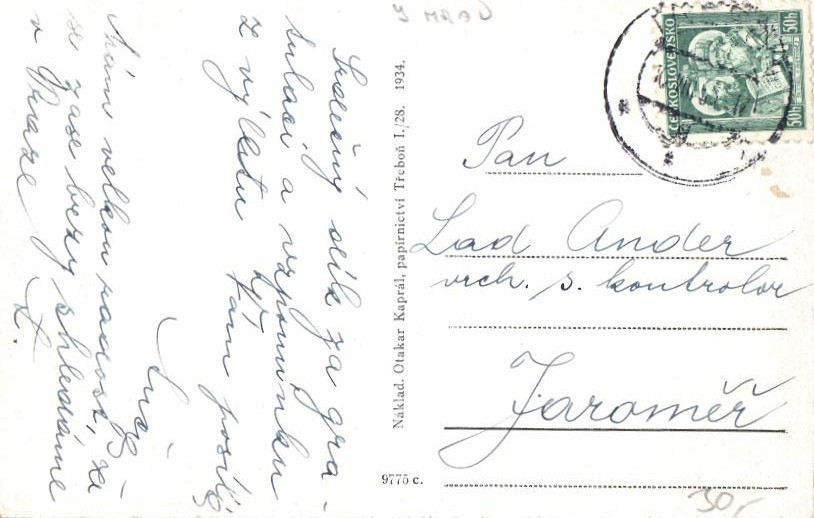 Srdečný dík za gra-
tulaci a vzpomínku
z výletu Vám posílá
Mám velkou radost, že
se zase brzy shledáme
v Praze
L.
Náklad. Otakar Kaprál, papírnictví Třeboň I./28. 1934.
9775 c.
ČESKOSLOVENSKO
50h
50h
Pan
Lad Ander
vrch. s. kontrolor
Jaroměř
30,-